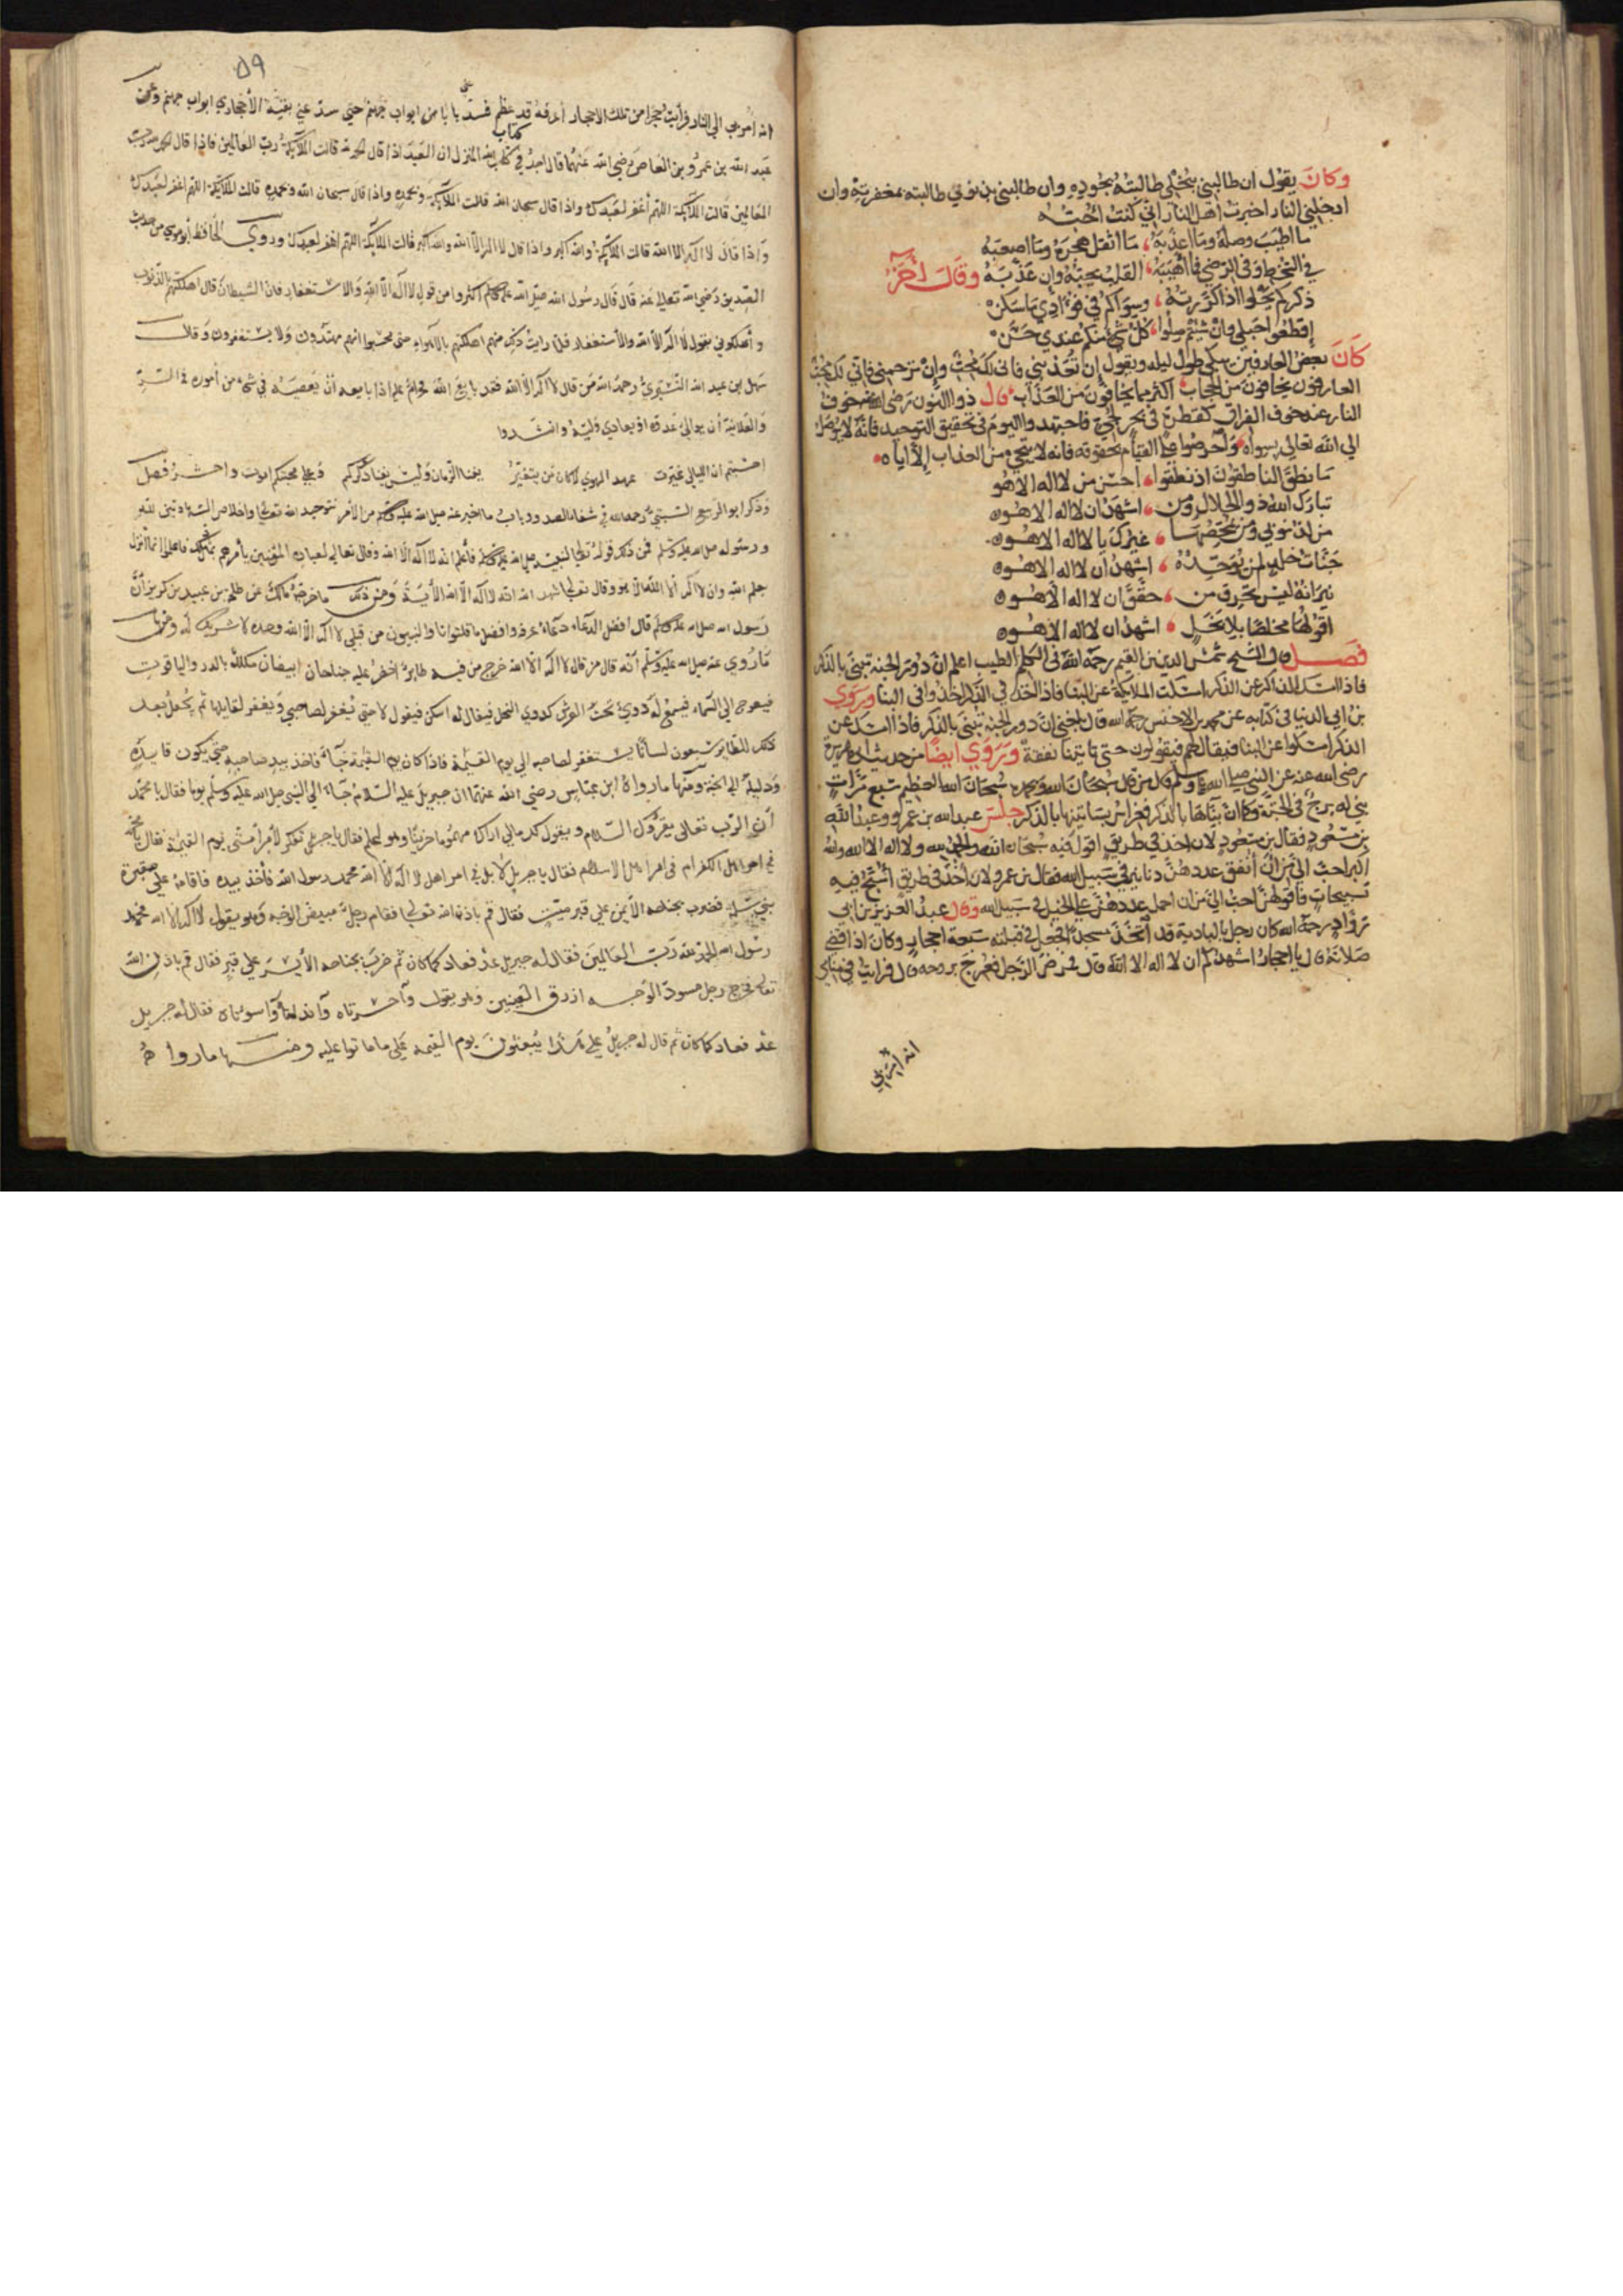 وكان يقول ان طالبني ببخلي طالبته بجوده وان طالبني بذنوبي طالبته بمغفرته وان
ادخلني النار اخبرت اهل النار اني كنت احبه
ما اطيب وصله وما اعذبه ما اثقل هجره وما اصعبه
في السخط وفي الرضي فما اهيبه القلب يحبه وان عذبه وقال اخر
ذكركم يحلوا اذا كررته وسواكم في فؤادي ما سكن
اقطعوا حبلي وان شيتم صلوا كل شئ منكم عندي حسن
كان بعض العارفين يبكي طول ليله ويقول ان تعذبني فاني لك محب وان ترحمني فاني لك محب
العارفون يخافون من الحجاب اكثر مما يخافون من العذاب قال ذوالنون رضي الله عنه خوف
النار عند خوف الفراق كقطرة في بحر لجي فاجتهدوا اليوم في تحقيق التوحيد فانه لا يوصل
الي الله تعالي سواه واحرصوا على القيام بحقوقه فانه لا ينجي من العذاب الا اياه
ما نطق الناطقون اذ نطقوا احسن من لا اله الا هو
تبارك الله ذو الجلال ومن اشهد ان لا اله الا هو
من لذنوبي ومن يمحصها غيرك يا لا اله الا هو
جنات خلد لمن يوحده اشهد ان لا اله الا هو
نيرانه ليس تحرق من حقق ان لا اله الا هو
اقولها مخلصا بلا بخل اشهد ان لا اله الا هو
فصل قال الشيخ شمس الدين بن القيم رحمه الله في الكلم الطيب اعلم ان دور الجنة تبني بالذكر
فاذا امسك الذاكر عن الذكر امسكت الملايكة عن البنا فاذا اخذ في الذكر اخذوا في البنا وروي
بن ابي الدنيا في كتابه عن محمد بن الاخنس رحمه الله قال بلغني ان دور الجنة تبني بالذكر فاذا امسك عن
الذكر امسكوا عن البنا فيقال لهم فيقولون حتى تاتينا نفقة وروي ايضا من حديث ابي هريرة
رضي الله عنه عن النبي صلى الله عليه وسلم قال من قال سبحان الله وبحمده سبحان الله العظيم سبع مرات
بني له برج في الجنة وكما ان بناها بالذكر فغراس بساتينها بالذكر جلس عبد الله بن عمرو وعبد الله
بن مسعود فقال بن مسعود لان اخذ في طريق اقول فيه سبحان الله والحمد لله ولا اله الا الله والله
اكبر احب الي من ان انفق عددهن دنانير في سبيل الله فقال بن عمرو لان اخذ في طريق اسبح فيه
تسبيحات فاقولهن احب الي من ان احمل عددهن على الخيل في سبيل الله وقال عبد العزيز بن ابي
رواد رحمه الله كان رجل بالبادية قد اتخذ مسجدا فجعل في قبلته سبعة احجار وكان اذا قضى
صلاته قال يا احجار اشهدكم ان لا اله الا الله قال فمرض الرجل فعرج بروحه قال فرايت في منامي
انه امر بي
٥٩
انه امر بي الي النار فرأيت حجرا من تلك الاحجار أعرفه قد عظم فسد علي بابا من ابواب جهنم حتي سد عني بقية الأحجار ابواب جهنم وعن
عبد الله بن عمرو بن العاص رضي الله عنهما قال اجد في كتاب الله المنزل ان العبد اذا قال الحمد لله قالت الملائكة رب العالمين فاذا قال الحمد لله رب
العالمين قالت الملائكة اللهم اغفر لعبدك واذا قال سبحان الله قالت الملائكة وبحمده واذا قال سبحان الله وبحمده قالت الملائكة اللهم اغفر لعبدك
واذا قال لا اله الا الله قالت الملائكة والله اكبر واذا قال لا اله الا الله والله اكبر قالت الملائكة اللهم اغفر لعبدك وروي الحافظ أبو موسي من حديث
الصديق رضي الله تعالى عنه قال قال رسول الله صلى الله عليه وسلم اكثروا من قول لا اله الا الله والاستغفار فان الشيطان قال اهلكتهم بالذنوب
و أهلكوني بقول لا اله الا الله والأستغفار فلما رايت ذلك منهم اهلكتهم بالاهواء حتى يحسبوا انهم مهتدون ولا يستغفرون وقال
سهل ابن عبد الله التستري رحمه الله من قال لا اله الا الله فقد بايع الله فحرام عليه اذا بايعه أن يعصيه في شئ من أموره في السر
والعلانية أن يوالي عدوه او يعادي وليه وانشدوا
احسبتم ان الليالي غيرت عهد الهوي لا كان من يتغير يفنا الزمان وليس يفنا ذكركم وعلي محبتكم اموت واحشر فصل
وذكر ابو الربيع السبتي رحمه الله في شفاء الصدور باب ما اخبر عنه صلى الله عليه وسلم من الأمر بتوحيد الله تعالي واخلاص الشهادتين لله
ورسوله صلى الله عليه وسلم فمن ذلك قوله تعالي لنبيه صلى الله عليه وسلم فأعلم انه لا اله الا الله وقال تعالى لعباده المؤمنين يأمرهم بذلك فاعلموا انما أنزل
بعلم الله وان لا اله الا هو وقال تعالي شهد الله انه لا اله الا الله الأية ومن ذلك ما خرجه مالك عن طلحة بن عبيد بن كريز أن
رسول الله صلى الله عليه وسلم قال افضل الدعاء دعاء عرفه وافضل ما قلت انا والنبيون من قبلي لا اله الا الله وحده لا شريك له ومنها
ما روي عنه صلى الله عليه وسلم أنه قال من قال لا اله الا الله خرج من فيه طاير أخضر عليه جناحان ابيضان مكلله بالدر والياقوت
فيعرج الي السماء فيسمع له دوي تحت العرش كدوي النحل فيقال له اسكن فيقول لا حتى تغفر لصاحبي فيغفر لقايلها ثم يجعل بعد
ذلك للطاير سبعون لسانا يستغفر لصاحبه الي يوم القيمة فاذا كان يوم القيمة جاء فاخذ بيد صاحبه حتى يكون قايده
ودليله الي الجنة ومنها ما رواه ابن عباس رضي الله عنهما ان جبريل عليه السلام جاء الي النبي صلى الله عليه وسلم يوما فقال يا محمد
أن الرب تعالى يقرؤك السلام ويقول لك مالي اراك مهموما حزينا وهو اعلم فقال يا جبريل تفكر لأمر أمتي يوم القيمة فقال يا محمد
في امر اهل الكفر ام في امر اهل الاسلام فقال يا جبريل لا بل في امر اهل لا اله الا الله محمد رسول الله فأخذ بيده فاقامه على مقبرة
بني سلمة فضرب بجناحه الأيمن علي قبر ميت فقال قم باذن الله تعالي فقام رجل مبيض الوجه وهو يقول لا اله الا الله محمد
رسول الله الحمد لله رب العالمين فقال له جبريل عد فعاد كما كان ثم ضرب بجناحه الأيسر علي قبر فقال قم باذن الله
تعالى فخرج رجل مسود الوجه ازرق العينين وهو يقول وآحسرتاه وآندامتاه وآسوأتاه فقال له جبريل
عد فعاد كما كان ثم قال له جبريل علي هذا يبعثون يوم القيمة على ما ماتوا عليه ومنها ما رواه